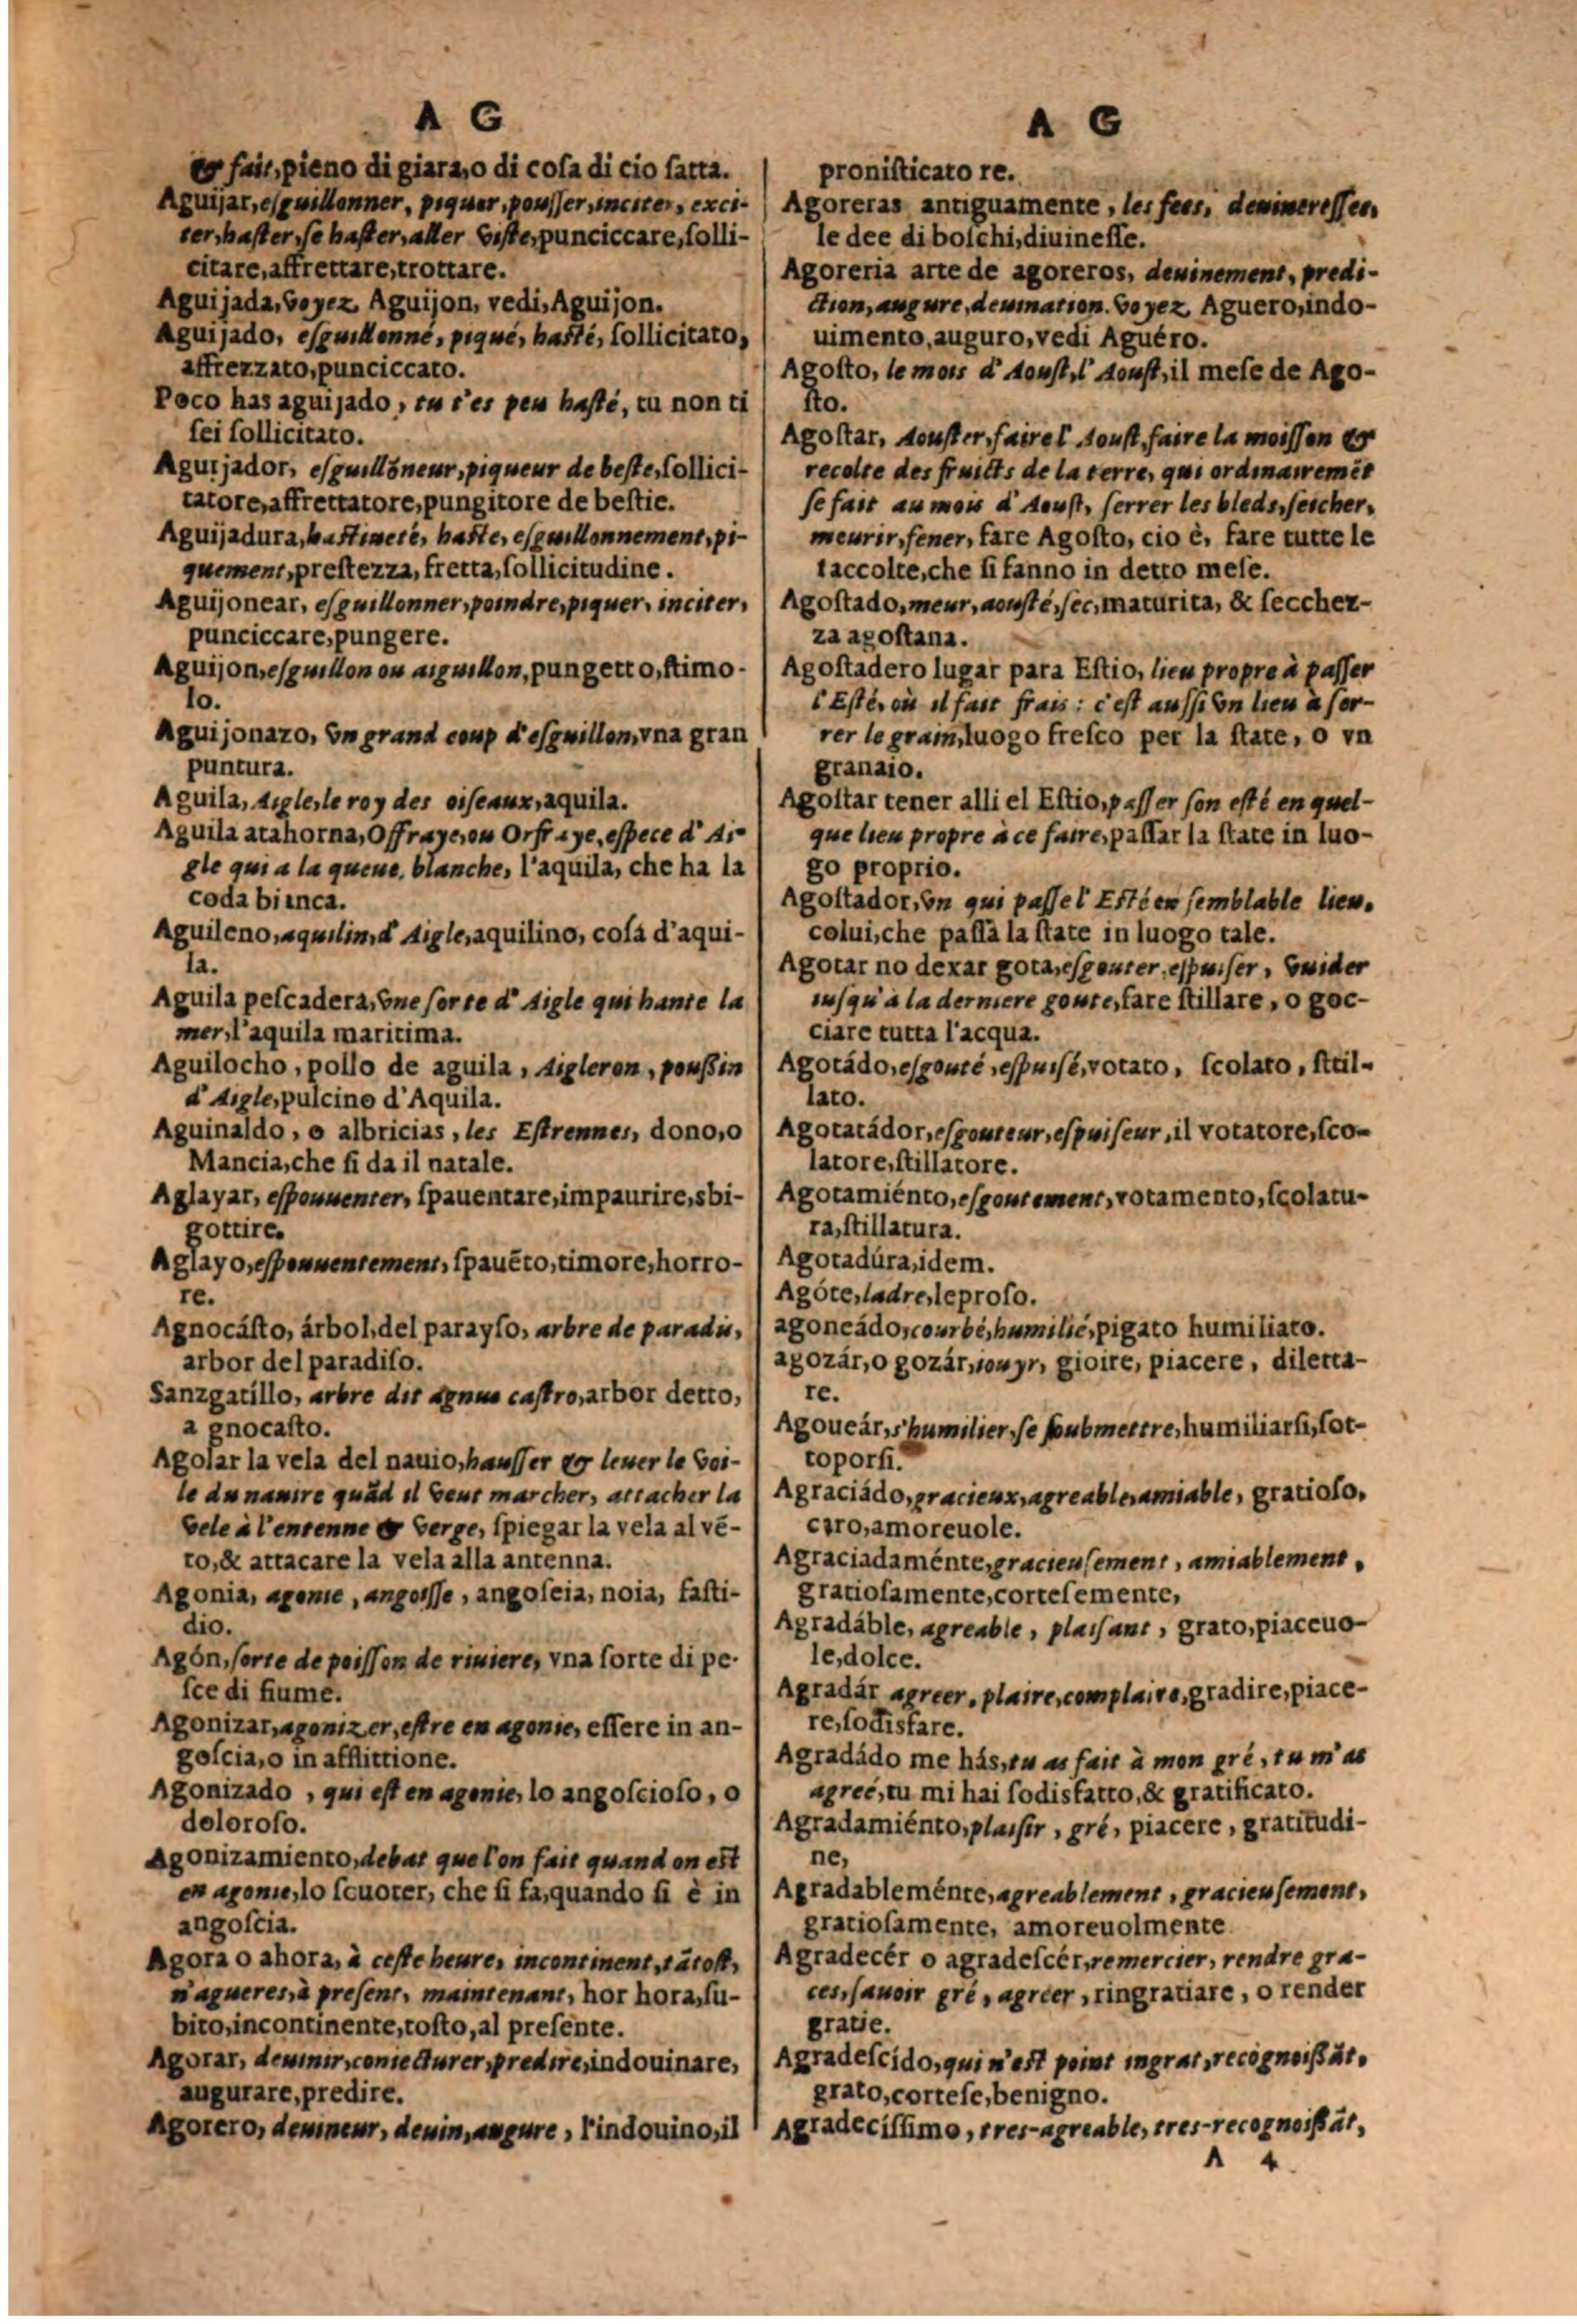 A G
& fait, pieno di giara, o di coſa di cio fatta.
Aguijar, eſguillonner, piquer, pouſſer, inciter, exci-
ter, haſter, ſe haſter, aller viſte, punciccare, ſolli-
citare, affrettare, trottare.
Aguijada, voyez Aguijon, vedi, Aguijon.
Aguijado, eſguillonné, piqué, haſté, ſollicitato,
affrezzato, punciccato.
Poco has aguijado, tu t'es peu haſté, tu non ti
ſei ſollicitato.
Aguijador, eſguillõneur, piqueur de beſte, ſollici-
tatore, affrettatore, pungitore de beſtie.
Aguijadura, haſtiueté, haſte, eſguillonnement, pi-
quement, preſtezza, fretta, ſollicitudine.
Aguijonear, eſguillonner, poindre, piquer, inciter,
punciccare, pungere.
Aguijon, eſguillon ou aiguillon, pungetto, ſtimo-
lo.
Aguijonazo, vn grand coup d'eſguillon, vna gran
puntura.
Aguila, Aigle, le roy des oiſeaux, aquila.
Aguila atahorna, Offraye, ou Orfraye, eſpece d'Ai-
gle qui a la queue, blanche, l'aquila, che ha la
coda bianca.
Aguileno, aquilin, d'Aigle, aquilino, coſa d'aqui-
la.
Aguila peſcadera, vne ſorte d'Aigle qui hante la
mer, l'aquila maritima.
Aguilocho, pollo de aguila, Aigleron, pouſsin
d'Aigle, pulcino d'Aquila.
Aguinaldo, o albricias, les Eſtrennes, dono, o
Mancia, che ſi da il natale.
Aglayar, eſpouuenter, ſpauentare, impaurire, sbi-
gottire.
Aglayo, eſpouuentement, ſpauẽto, timore, horro-
re.
Agnocáſto, árbol, del parayſo, arbre de paradis,
arbor del paradiſo.
Sanzgatíllo, arbre dit agnus caſtro, arbor detto,
a gnocaſto.
Agolar la vela del nauio, hauſſer & leuer le voi-
le du nauire quãd il veut marcher, attacher la
vele à l'entenne & verge, ſpiegar la vela al vẽ-
to, & attacare la vela alla antenna.
Agonia, agonie, angoiſſe, angoſcia, noia, faſti-
dio.
Agón, ſorte de poiſſon de riuiere, vna ſorte di pe-
ſce di fiume.
Agonizar, agonizer, eſtre en agonie, eſſere in an-
goſcia, o in afflittione.
Agonizado, qui eſt en agonie, lo angoſcioſo, o
doloroſo.
Agonizamiento, debat que l'on fait quand on eſt
en agonie, lo ſcuoter, che ſi fa, quando ſi è in
angoſcia.
Agora o ahora, à ceſte heure, incontinent, tãtoſt,
n'agueres, à preſent, maintenant, hor hora, ſu-
bito, incontinente, toſto, al preſente.
Agorar, deuinir, coniecturer, predire, indouinare,
augurare, predire.
Agorero, deuineur, deuin, augure, l'indouino, il
A G
proniſticato re.
Agoreras antiguamente, les fees, deuinereſſes,
le dee di boſchi, diuineſſe.
Agoreria arte de agoreros, deuinement, predi-
ction, augure, deuination. voyez Aguero, indo-
uimento, auguro, vedi Aguéro.
Agoſto, le mois d'Aouſt, l'Aouſt, il meſe de Ago-
ſto.
Agoſtar, Aouſter, faire l'Aouſt, faire la moiſſon &
recolte des fruicts de la terre, qui ordinairemẽt
ſe fait au mois d'Aouſt, ſerrer les bleds, ſeicher,
meurir, fener, fare Agoſto, cio è, fare tutte le
raccolte, che ſi fanno in detto meſe.
Agoſtado, meur, aouſté, ſec, maturita, & ſecchez-
za agoſtana.
Agoſtadero lugar para Eſtio, lieu propre à paſſer
l'Eſté, où il fait frais: c'eſt auſſi vn lieu à ſer-
rer le grain, luogo freſco per la ſtate, o vn
granaio.
Agoſtar tener alli el Eſtio, paſſer ſon eſté en quel-
que lieu propre à ce faire, paſſar la ſtate in luo-
go proprio.
Agoſtador, vn qui paſſe l'Eſté en ſemblable lieu,
colui, che paſſa la ſtate in luogo tale.
Agotar no dexar gota, eſgouter, eſpuiſer, vuider
iuſqu'à la derniere goute, fare ſtillare, o goc-
ciare tutta l'acqua.
Agotádo, eſgouté, eſpuiſé, votato, ſcolato, ſtil-
lato.
Agotatádor, eſgouteur, eſpuiſeur, il votatore, ſco-
latore, ſtillatore.
Agotamiénto, eſgoutement, votamento, ſcolatu-
ra, ſtillatura.
Agotadúra, idem.
Agóte, ladre, leproſo.
agoneádo, courbé, humilié, pigato humiliato.
agozár, o gozár, iouyr, gioire, piacere, diletta-
re.
Agoueár, s'humilier, ſe ſoubmettre, humiliarſi, ſot-
toporſi.
Agraciádo, gracieux, agreable, amiable, gratioſo,
caro, amoreuole.
Agraciadaménte, gracieuſement, amiablement,
gratioſamente, corteſemente,
Agradáble, agreable, plaiſant, grato, piaceuo-
le, dolce.
Agradár agreer, plaire, complaire, gradire, piace-
re, ſodisfare.
Agradádo me hás, tu as fait à mon gré, tu m'as
agreé, tu mi hai ſodisfatto, & gratificato.
Agradamiénto, plaiſir, gré, piacere, gratitudi-
ne,
Agradableménte, agreablement, gracieuſement,
gratioſamente, amoreuolmente
Agradecér o agradeſcér, remercier, rendre gra-
ces, ſauoir gré, agreer, ringratiare, o render
gratie.
Agradeſcído, qui n'eſt point ingrat, recognoiſſãt,
grato, corteſe, benigno.
Agradeciſſimo, tres-agreable, tres-recognoiſſãt,
A 4